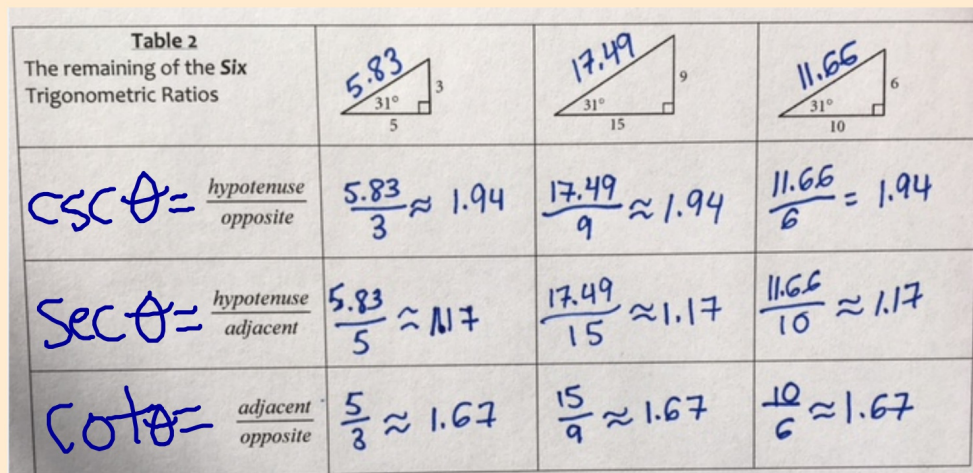 Table 2
The remaining of the Six
Trigonometric Ratios
5.83
3
31°
5
17.49
9
31°
15
11.66
6
31°
10
cscθ= hypotenuse/opposite
5.83/3 ≈ 1.94
17.49/9 ≈ 1.94
11.66/6 = 1.94
Secθ= hypotenuse/adjacent
5.83/5 ≈ 1.17
17.49/15 ≈ 1.17
11.66/10 ≈ 1.17
cotθ= adjacent/opposite
5/3 ≈ 1.67
15/9 ≈ 1.67
10/6 ≈ 1.67